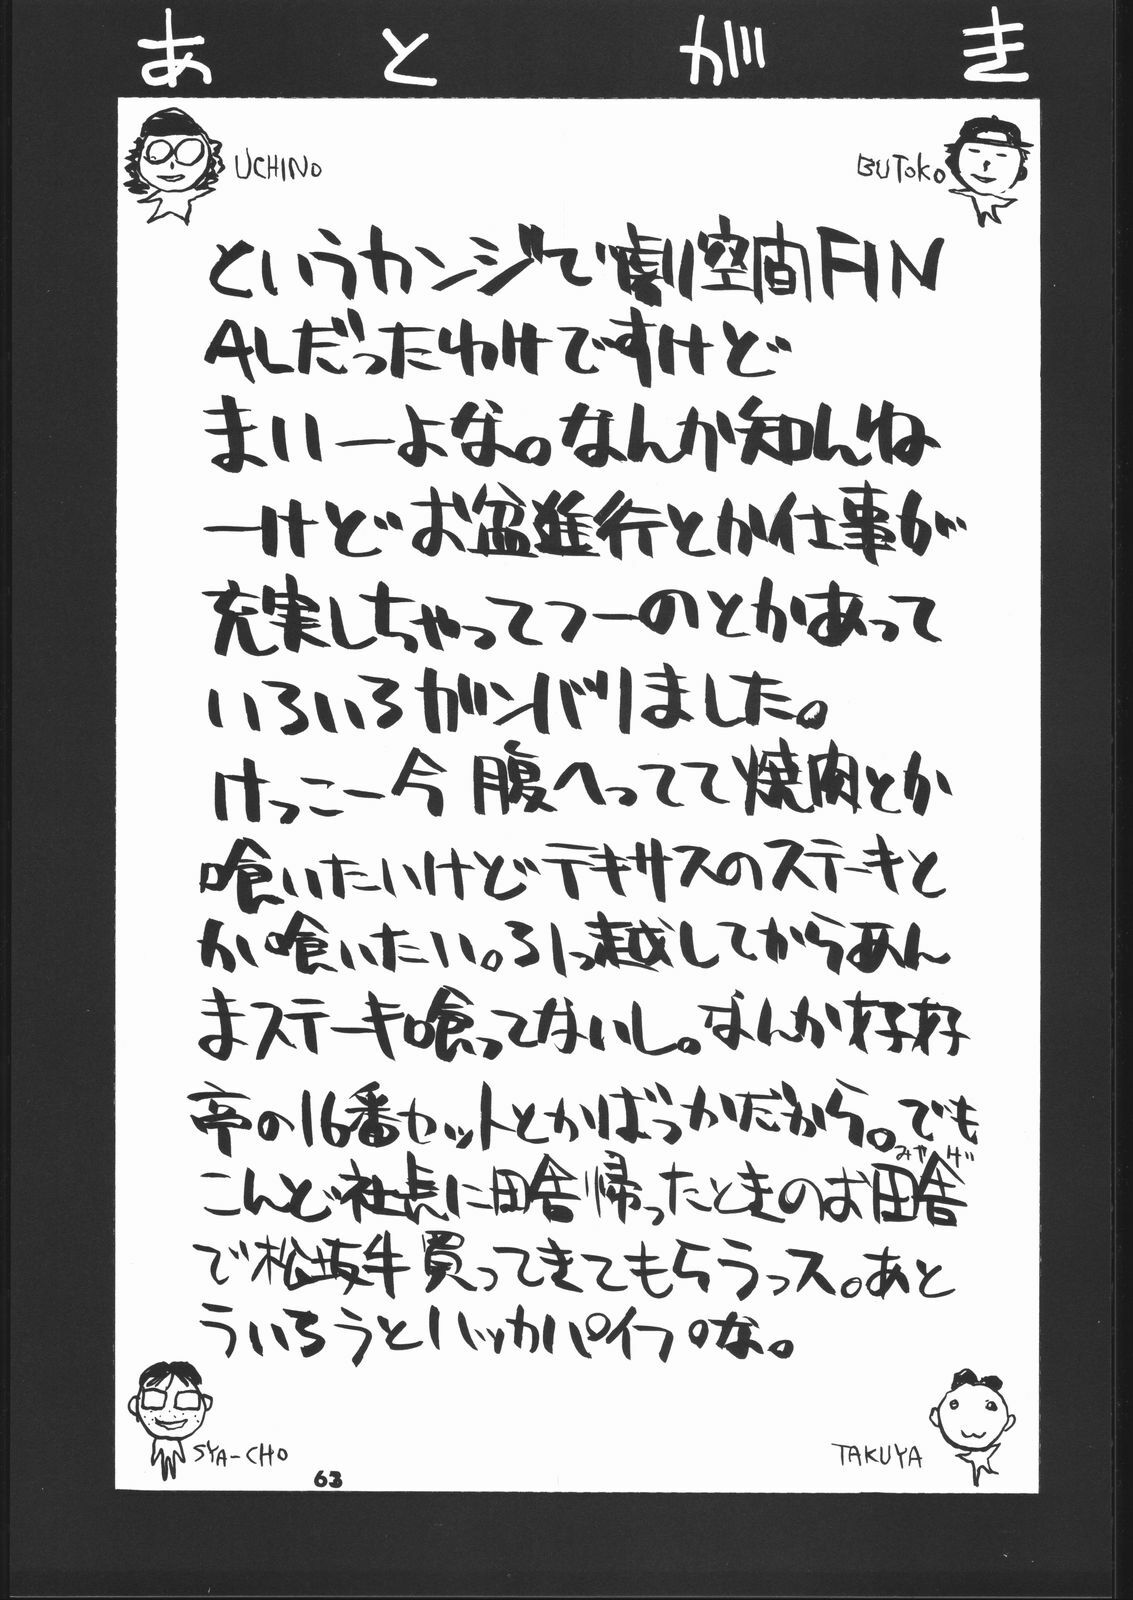 あとがき
UCHINO
BUTOKO
というカンジで劇空間FIN
ALだったわけですけど
まいーよな。なんか知んね
ーけどお盆進行とか仕事が
充実しちゃってつーのとかあって
いろいろガンバりました。
けっこー今腹へってて焼肉とか
喰いたいけどテキサスのステーキと
か喰いたい。引っ越してからあん
まステーキ喰ってないし。なんか好好
亭の16番セットとかばっかだから。でも
みやげ
こんど社長に田舎帰ったときのお田舎
で松坂牛買ってきてもらうっス。あと
ういろうとハッカパイプな。
SYA-CHO
TAKUYA
63